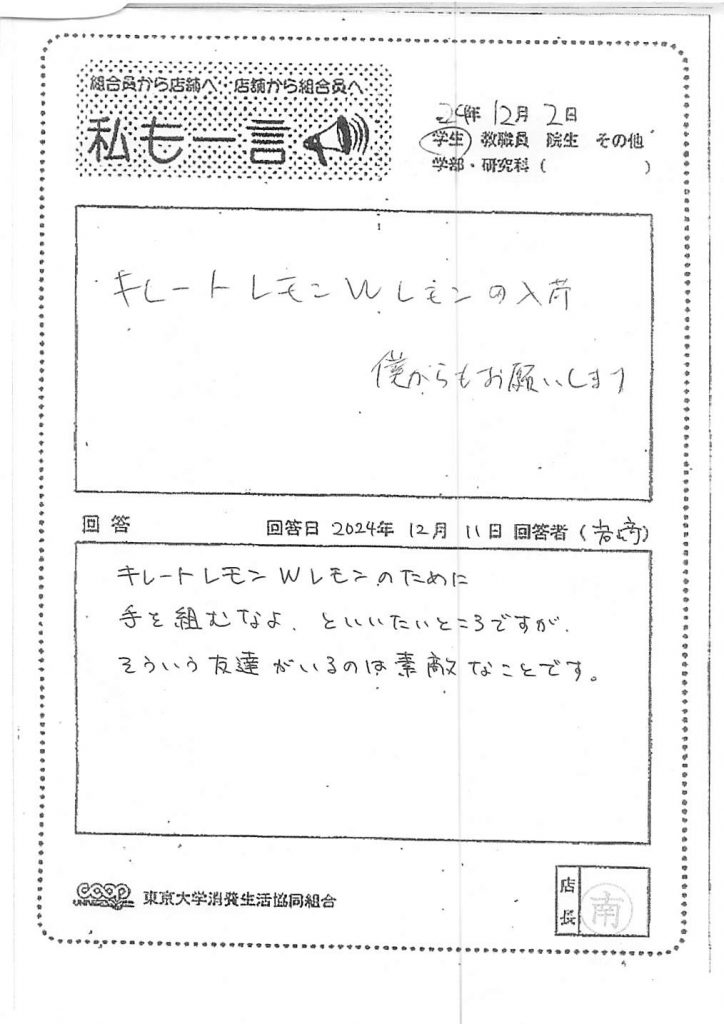 組合員から店舗へ 店舗から組合員へ
私も一言
24年 12月 2日
学生 教職員 院生 その他
学部・研究科 ( )
キレートレモンWレモンの入荷
僕からもお願いします
回答 回答日 2024年 12月 11日 回答者 (岩崎)
キレートレモンWレモンのために
手を組むなよ、といいたいところですが、
そういう友達がいるのは素敵なことです。
coop 東京大学消費生活協同組合
店長 南